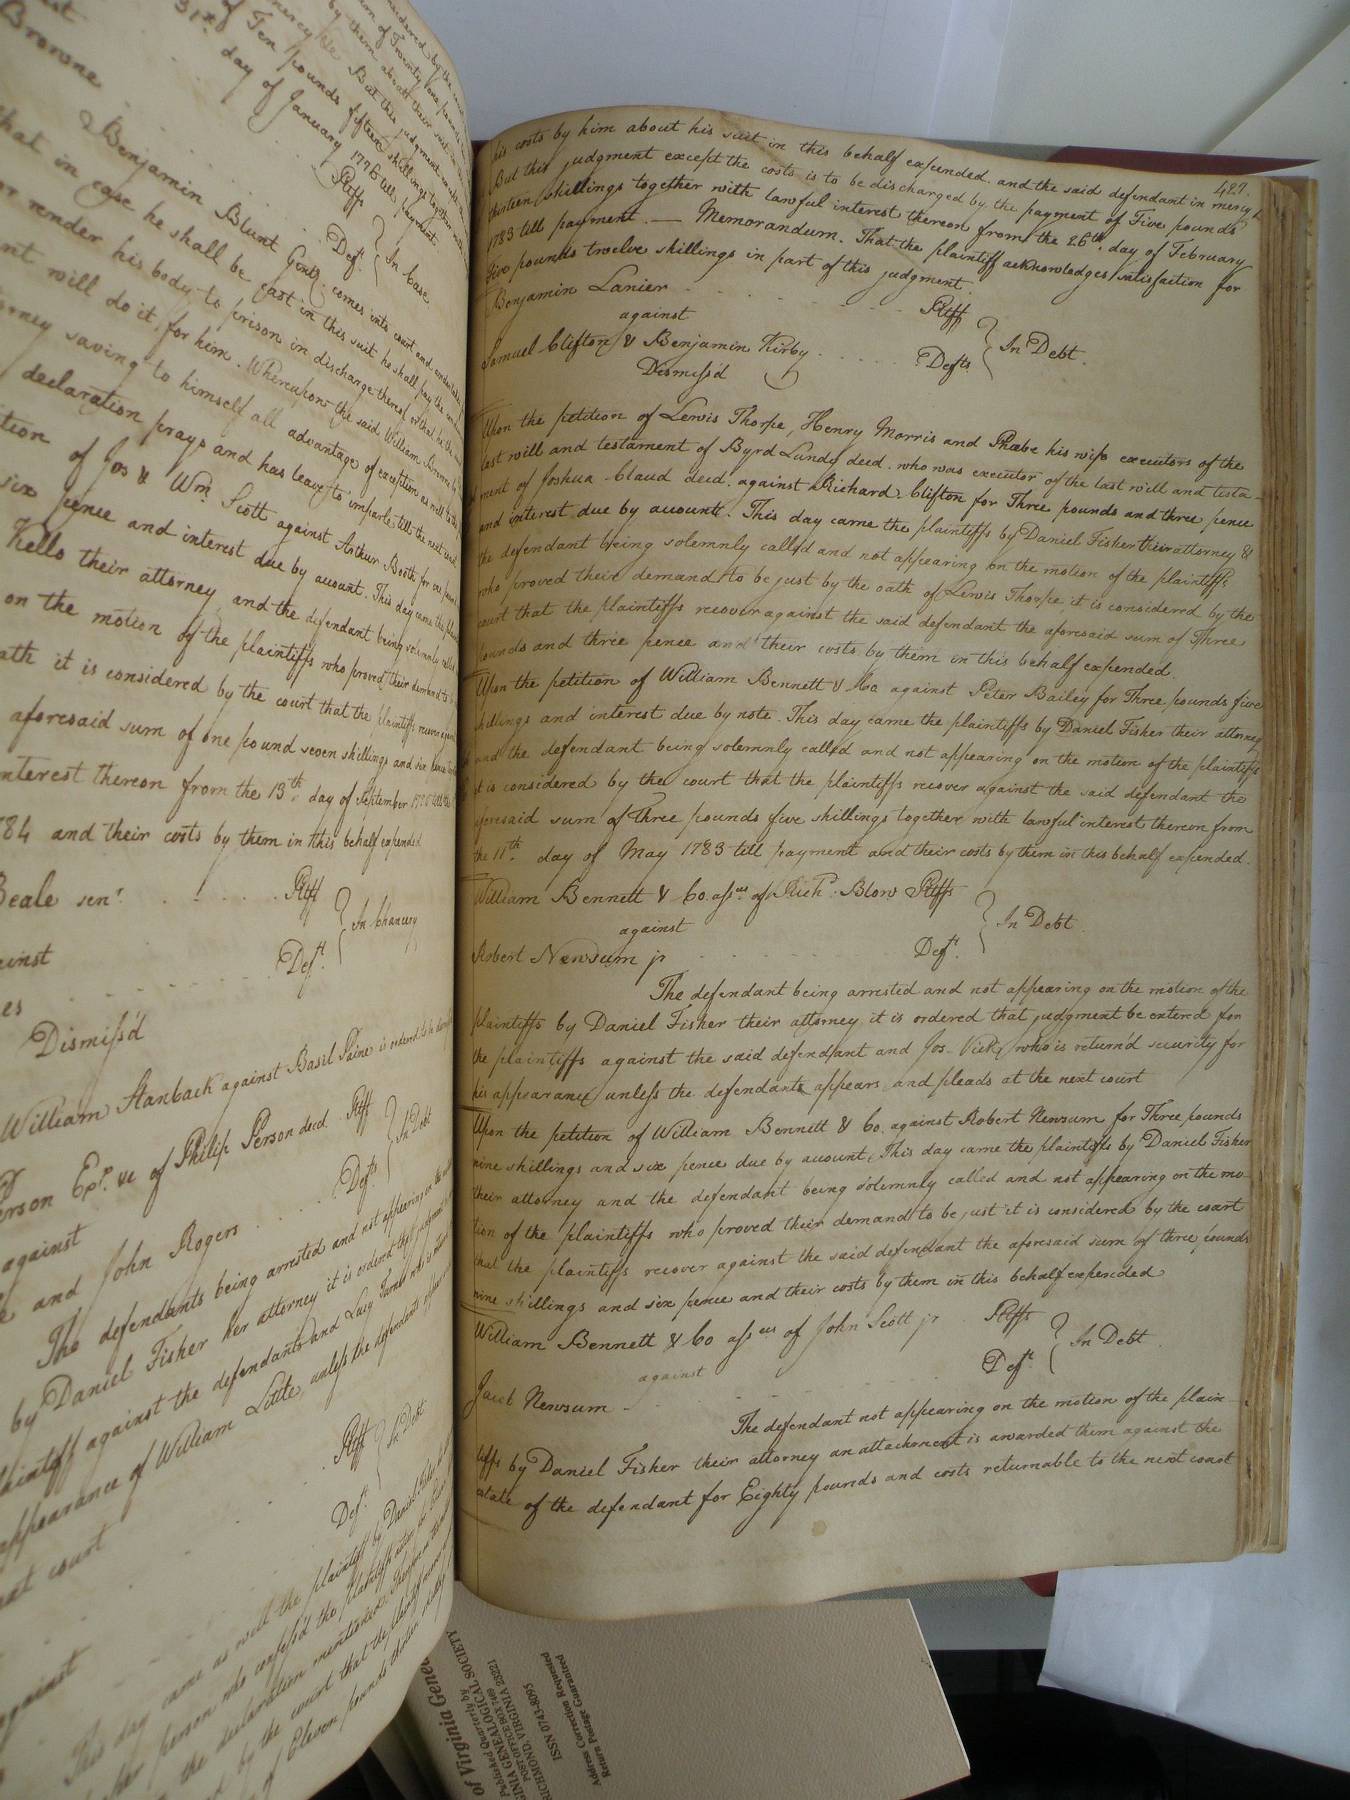 Browne
31st day of January 1778 till payment
Benjamin Blunt Gent. comes into court and undertakes
that in case he shall be cast in this suit he shall pay the
or render his body to prison in discharge thereof or that he the said
nt will do it for him. Whereupon the said William Browne by
orney saving to himself all advantage of exception as well to the
declaration prays and has leave to imparle till the next court
tion of Jos & Wm. Scott against Arthur Booth for one pound
six pence and interest due by account. This day came the
Kello their attorney and the defendant being solemnly called
on the motion of the plaintiffs who proved their demand to be
ath it is considered by the court that the plaintiffs recover against
aforesaid sum of one pound seven shillings and six pence
nterest thereon from the 13th day of September
784 and their costs by them in this behalf expended
Beale senr. Pltff
ainst In Chancery
es Deft.
Dismiss'd
William Stanback against Basil Paine is ordered to be
erson Exr. &c of Philip Person deced Pltff
against In Debt
and John Rogers Defts
The defendants being arrested and not appearing on the
by Daniel Fisher her attorney it is ordered that judgment
laintiff against the defendants and Lucy Turner who is
appearance of William Little, unless the defendants
next court
Pltff
In Debt
Deft.
against
This day came as well the plaintiff by Daniel Fisher
the declaration mentioned. Therefore
by the court that the
of Eleven pounds
487.
his costs by him about his suit in this behalf expended. and the said defendant in mercy &
But this judgment except the costs is to be discharged by the payment of Five pounds
thirteen shillings together with lawful interest thereon from the 26th. day of February
1783 till payment. — Memorandum. That the plaintiff acknowledges satisfaction for
Five pounds twelve shillings in part of this judgment.
Benjamin Lanier Pltff
against In Debt.
Samuel Clifton & Benjamin Kirby Defts
Dismiss'd
Upon the petition of Lewis Thorpe, Henry Morris and Phœbe his wife executors of the
last will and testament of Byrd Lundy deed. who was executor of the last will and testa-
ment of Joshua Claud deed. against Richard Clifton for Three pounds and three pence
and interest due by account. This day came the plaintiffs by Daniel Fisher their attorney &
the defendant being solemnly called and not appearing on the motion of the plaintiffs
who proved their demand to be just by the oath of Lewis Thorpe it is considered by the
court that the plaintiffs recover against the said defendant the aforesaid sum of Three
pounds and three pence and their costs by them in this behalf expended.
Upon the petition of William Bennett & Co against Peter Bailey for Three pounds five
shillings and interest due by note. This day came the plaintiffs by Daniel Fisher their attorney
and the defendant being solemnly called and not appearing on the motion of the plaintiffs
it is considered by the court that the plaintiffs recover against the said defendant the
aforesaid sum of Three pounds five shillings together with lawful interest thereon from
the 11th. day of May 1783 till payment and their costs by them in this behalf expended.
William Bennett & Co. assees of Richd. Blow Pltffs
against In Debt
Robert Newsum jr Deft.
The defendant being arrested and not appearing on the motion of the
plaintiffs by Daniel Fisher their attorney it is ordered that judgment be entered for
the plaintiffs against the said defendant and Jos. Vick, who is return'd security for
his appearance unless the defendants appears and pleads at the next court
Upon the petition of William Bennett & Co. against Robert Newsum for Three pounds
nine shillings and six pence due by account, This day came the plaintiffs by Daniel Fisher
their attorney and the defendant being solemnly called and not appearing on the mo-
tion of the plaintiffs who proved their demand to be just it is considered by the court
that the plaintiffs recover against the said defendant the aforesaid sum of three pounds
nine shillings and six pence and their costs by them in this behalf expended
William Bennett & Co assees of John Scott jr Pltffs
against In Debt
Jacob Newsum Deft.
The defendant not appearing on the motion of the plain-
tiffs by Daniel Fisher their attorney an attachment is awarded them against the
estate of the defendant for Eighty pounds and costs returnable to the next court
of Virginia Genea
Published Quarterly by
GINIA GENEALOGICAL SOCIETY
POST OFFICE BOX 7469
RICHMOND, VIRGINIA 23221
ISSN 0743-8095
Address Correction Requested
Return Postage Guaranteed